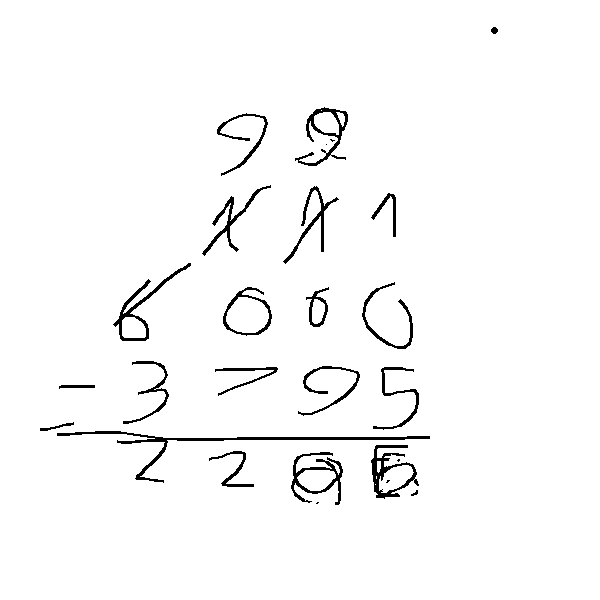 9 9
1 1 1
6 0 0 0
- 3 7 9 5
2 2 0 5